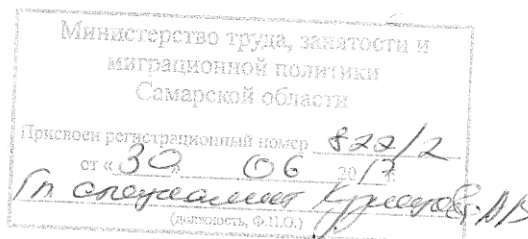 Министерство труда, занятости и
миграционной политики
Самарской области
Присвоен регистрационный номер 822/2
от «30» 06 2017
Гл. специалист
(должность, Ф.И.О.)